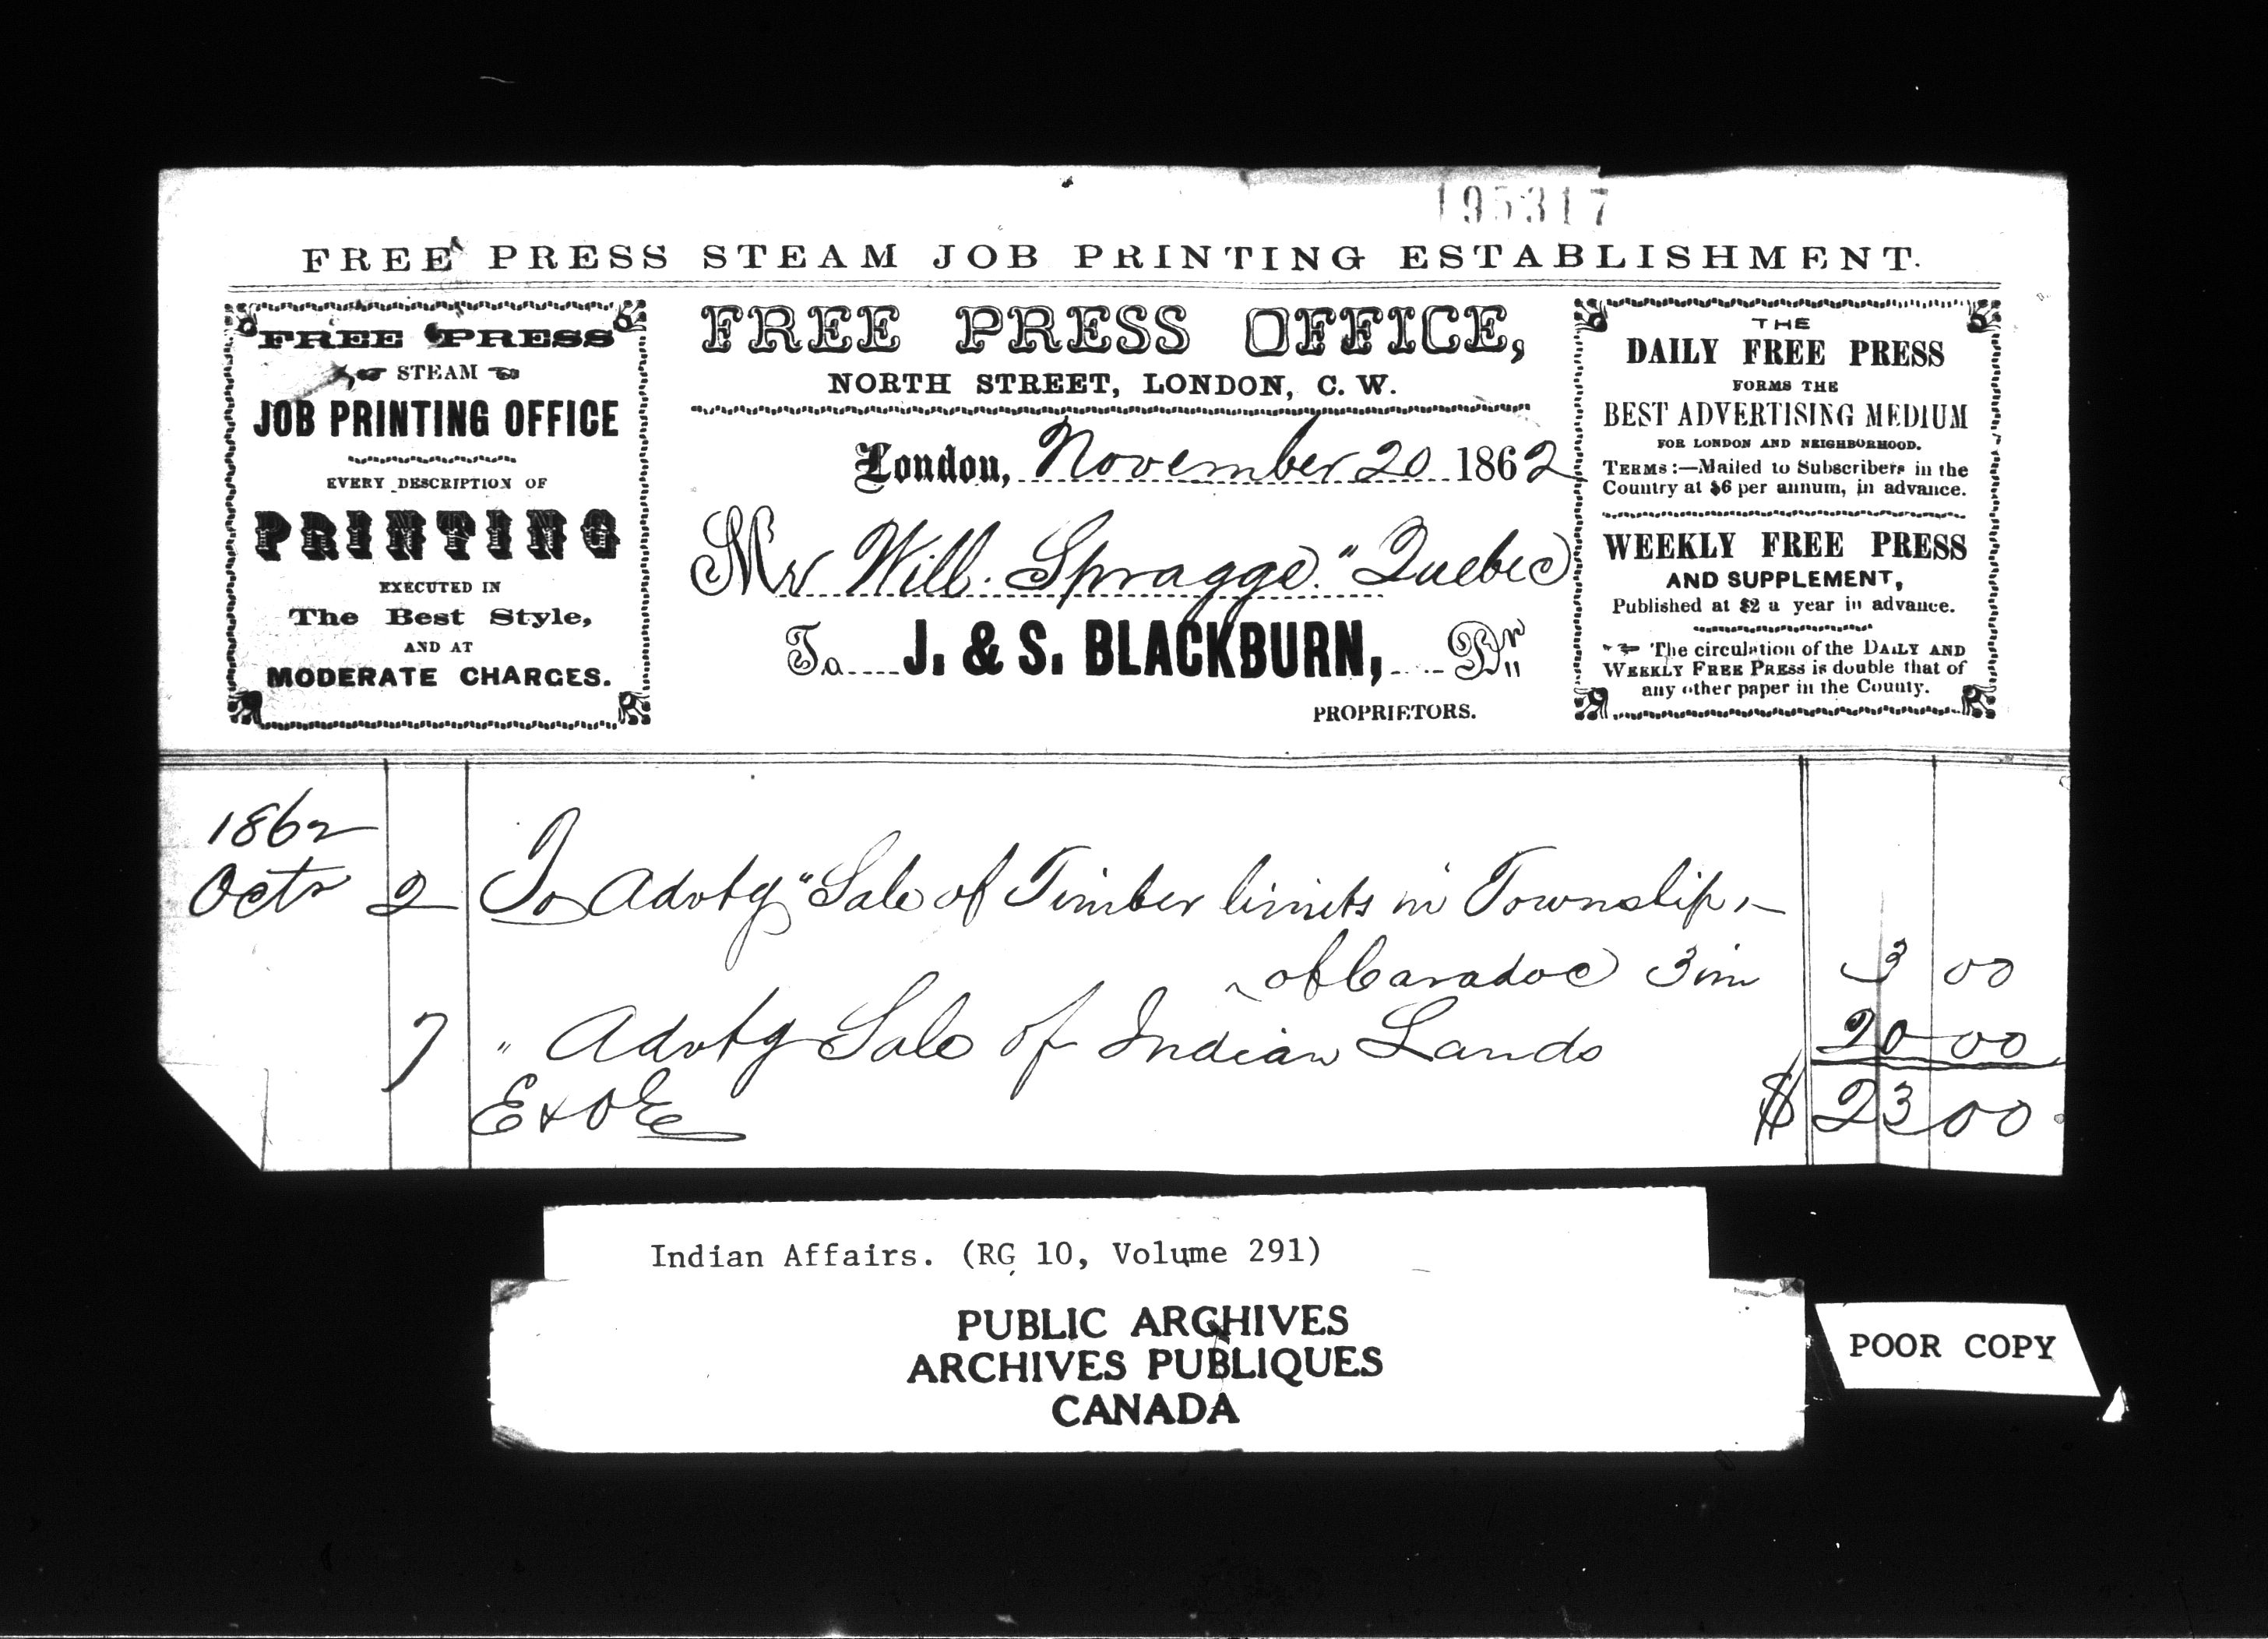 195317
FREE PRESS STEAM JOB PRINTING ESTABLISHMENT.
FREE PRESS
STEAM
JOB PRINTING OFFICE
EVERY DESCRIPTION OF
PRINTING
EXECUTED IN
The Best Style,
AND AT
MODERATE CHARGES.
FREE PRESS OFFICE,
NORTH STREET, LONDON, C. W.
London, November 20 1862
Mr Will. Spragge. " Quebec
To J. & S. BLACKBURN, Dr
PROPRIETORS.
THE
DAILY FREE PRESS
FORMS THE
BEST ADVERTISING MEDIUM
FOR LONDON AND NEIGHBORHOOD.
TERMS:—Mailed to Subscribers in the
Country at $6 per annum, in advance.
WEEKLY FREE PRESS
AND SUPPLEMENT,
Published at $2 a year in advance.
The circulation of the DAILY AND
WEEKLY FREE PRESS is double that of
any other paper in the County.
1862
Octr 2 To Advtg "Sale of Timber limits in Township,
of Caradoc 3 im 3 00
7 " Advtg Sale of Indian Lands 20 00
E & O E $ 23 00
Indian Affairs. (RG 10, Volume 291)
PUBLIC ARCHIVES
ARCHIVES PUBLIQUES
CANADA
POOR COPY